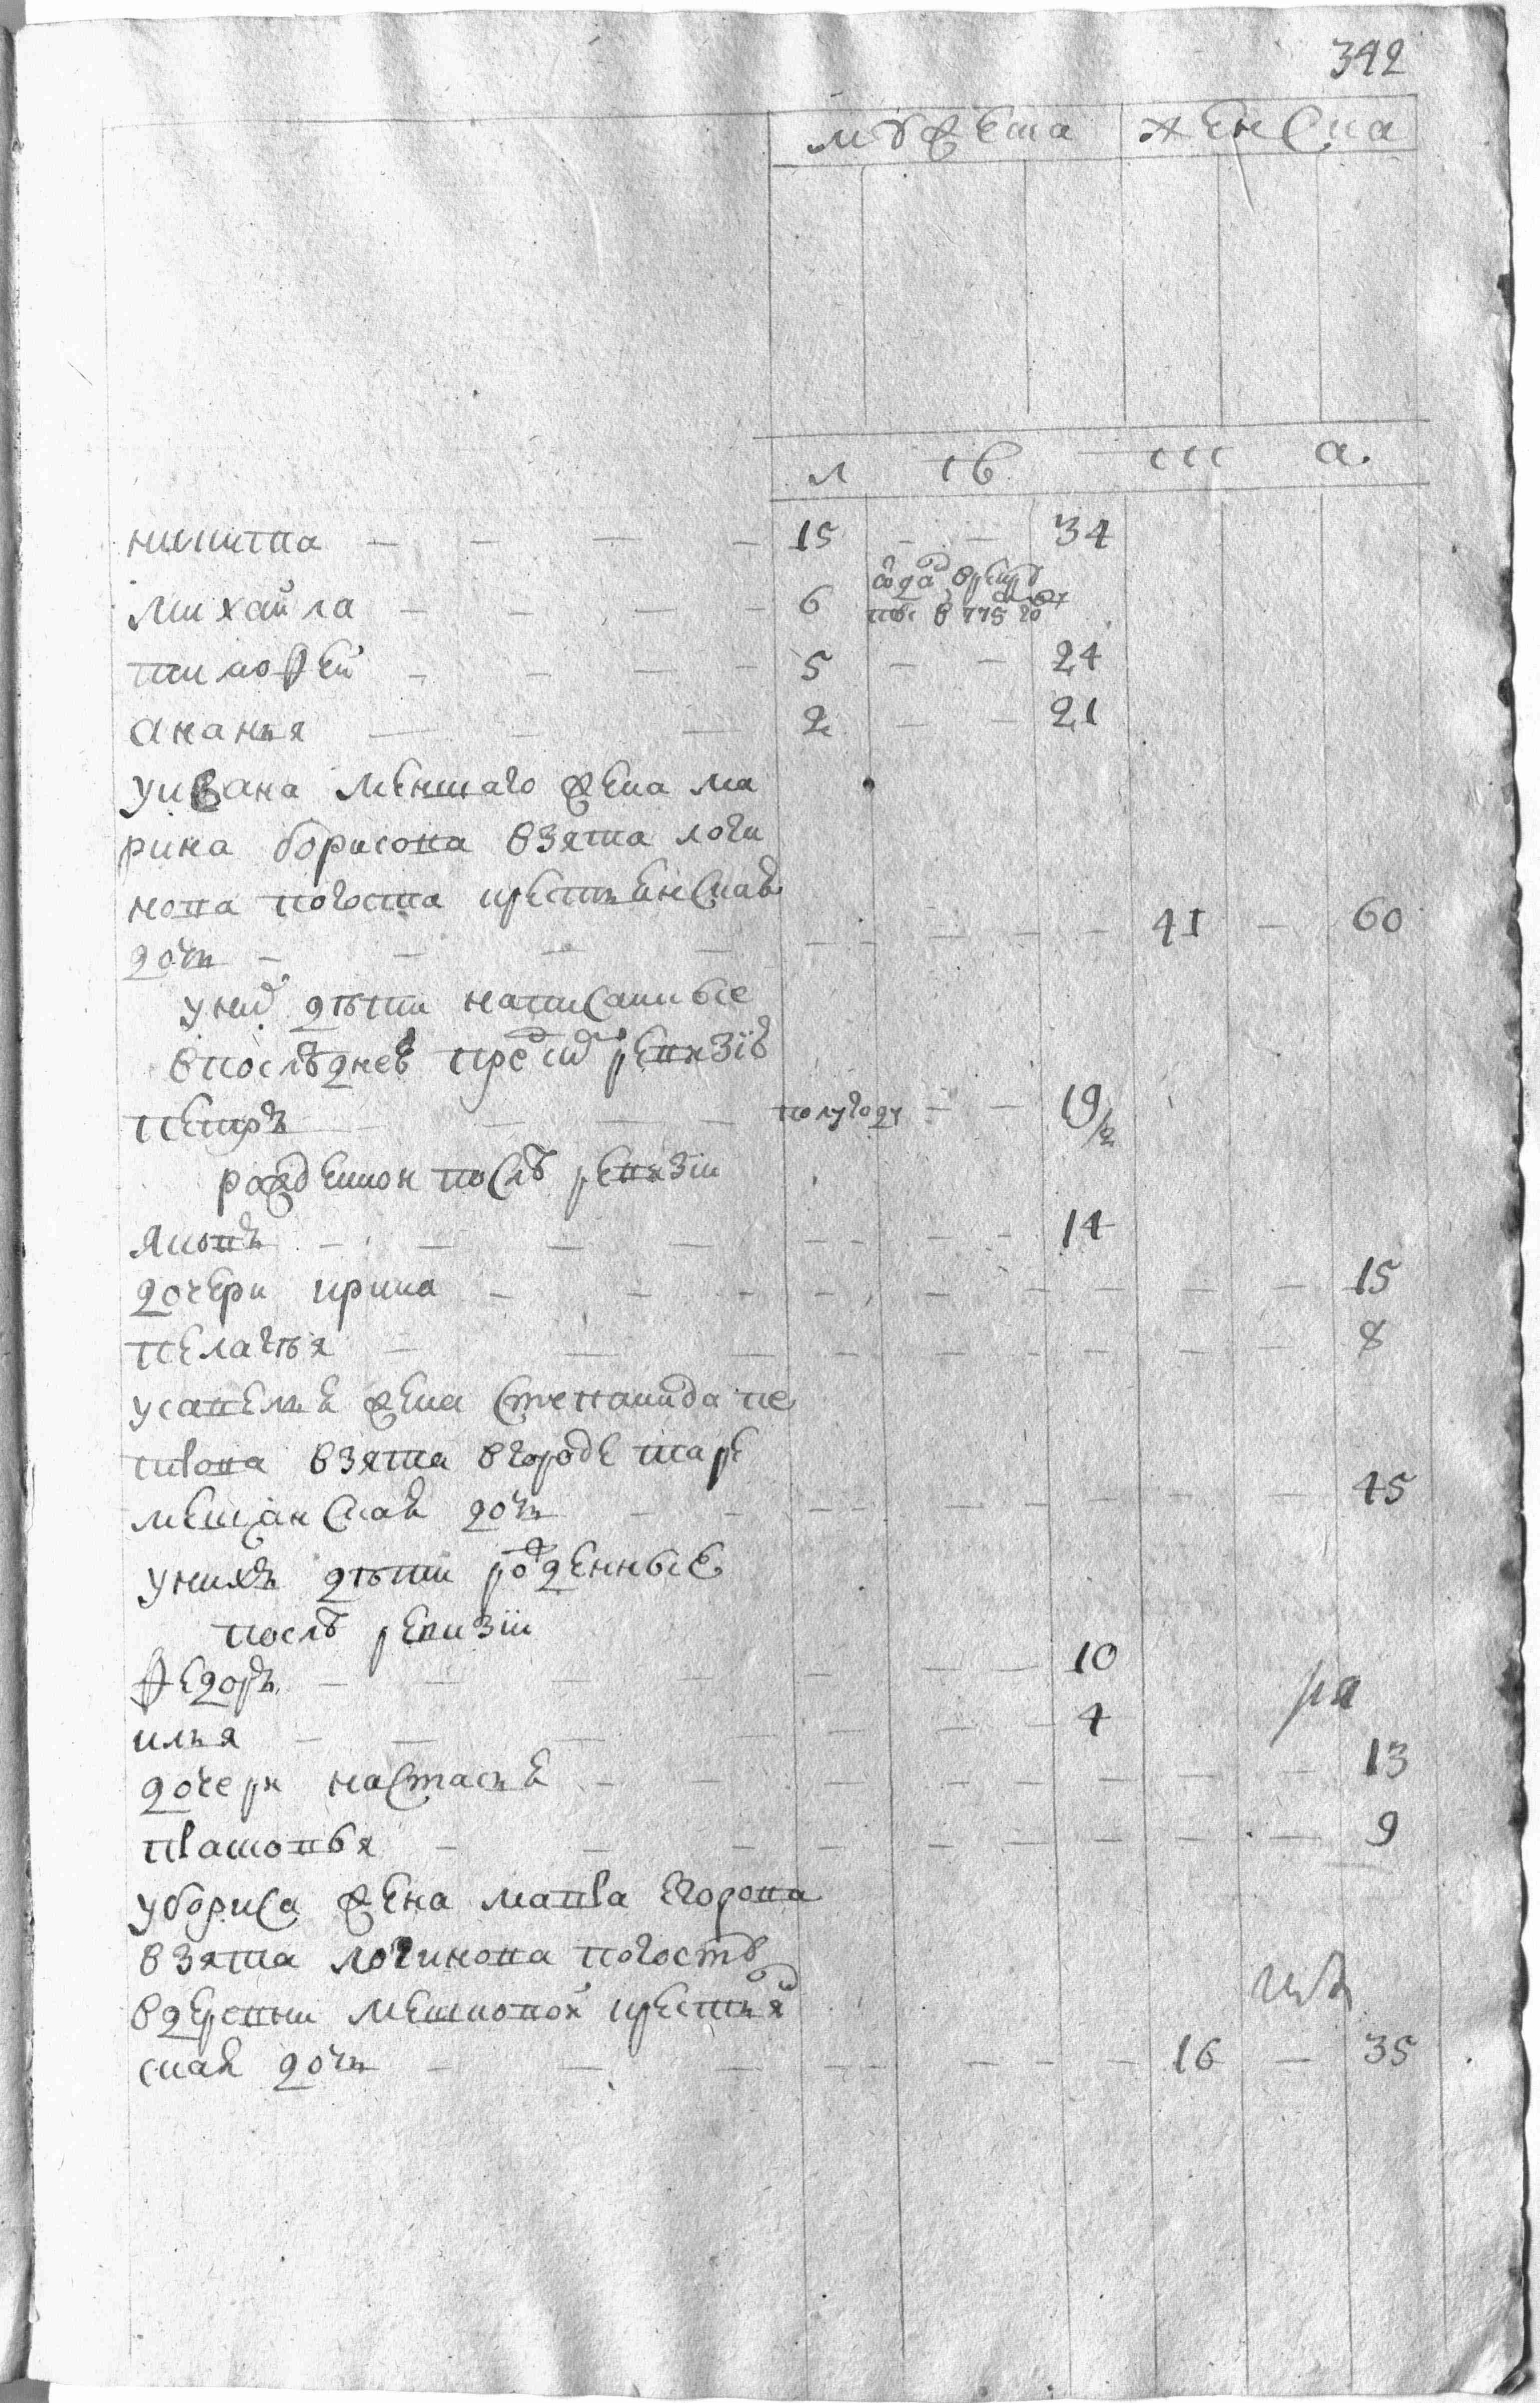 342
мужеска женска
л тъ ска
никита — — — — 15 — — 34
отда в рекру
ты в 775 го
михайла — — — 6
тимофей — — — — 5 — — 24
ананья — — — 2 — — 21
у ивана меншаго жена ма
рина борисова взята логи
нова погоста крестьенскаѣ
дочь — — — — — — — — 41 — 60
у них дѣти написанные
в последнеѣ пред сим ревизіѣ
петръ — — — полугоду — — 19/2
рожденнои послѣ ревизіи
яковъ — — — — — — — — 14
дочери ирина — — — — — — — — — 15
пелагѣя — — — — — — — — — 8
у савельѣ жена степанида пе
трова взята в городе таре
мещанскаѣ дочь — — — — — — — 45
у нихъ дѣти рожденные
послѣ ревизіи
федоръ — — — — — — 10
илья — — — — — — — 4
дочери настасьѣ — — — — — — — 13
платонвя — — — — — — — — — 9
у бориса жена мавра егорова
взята логинова погоста
в деревни мешковой крестья
скаѣ дочь — — — — — — — 16 — 35